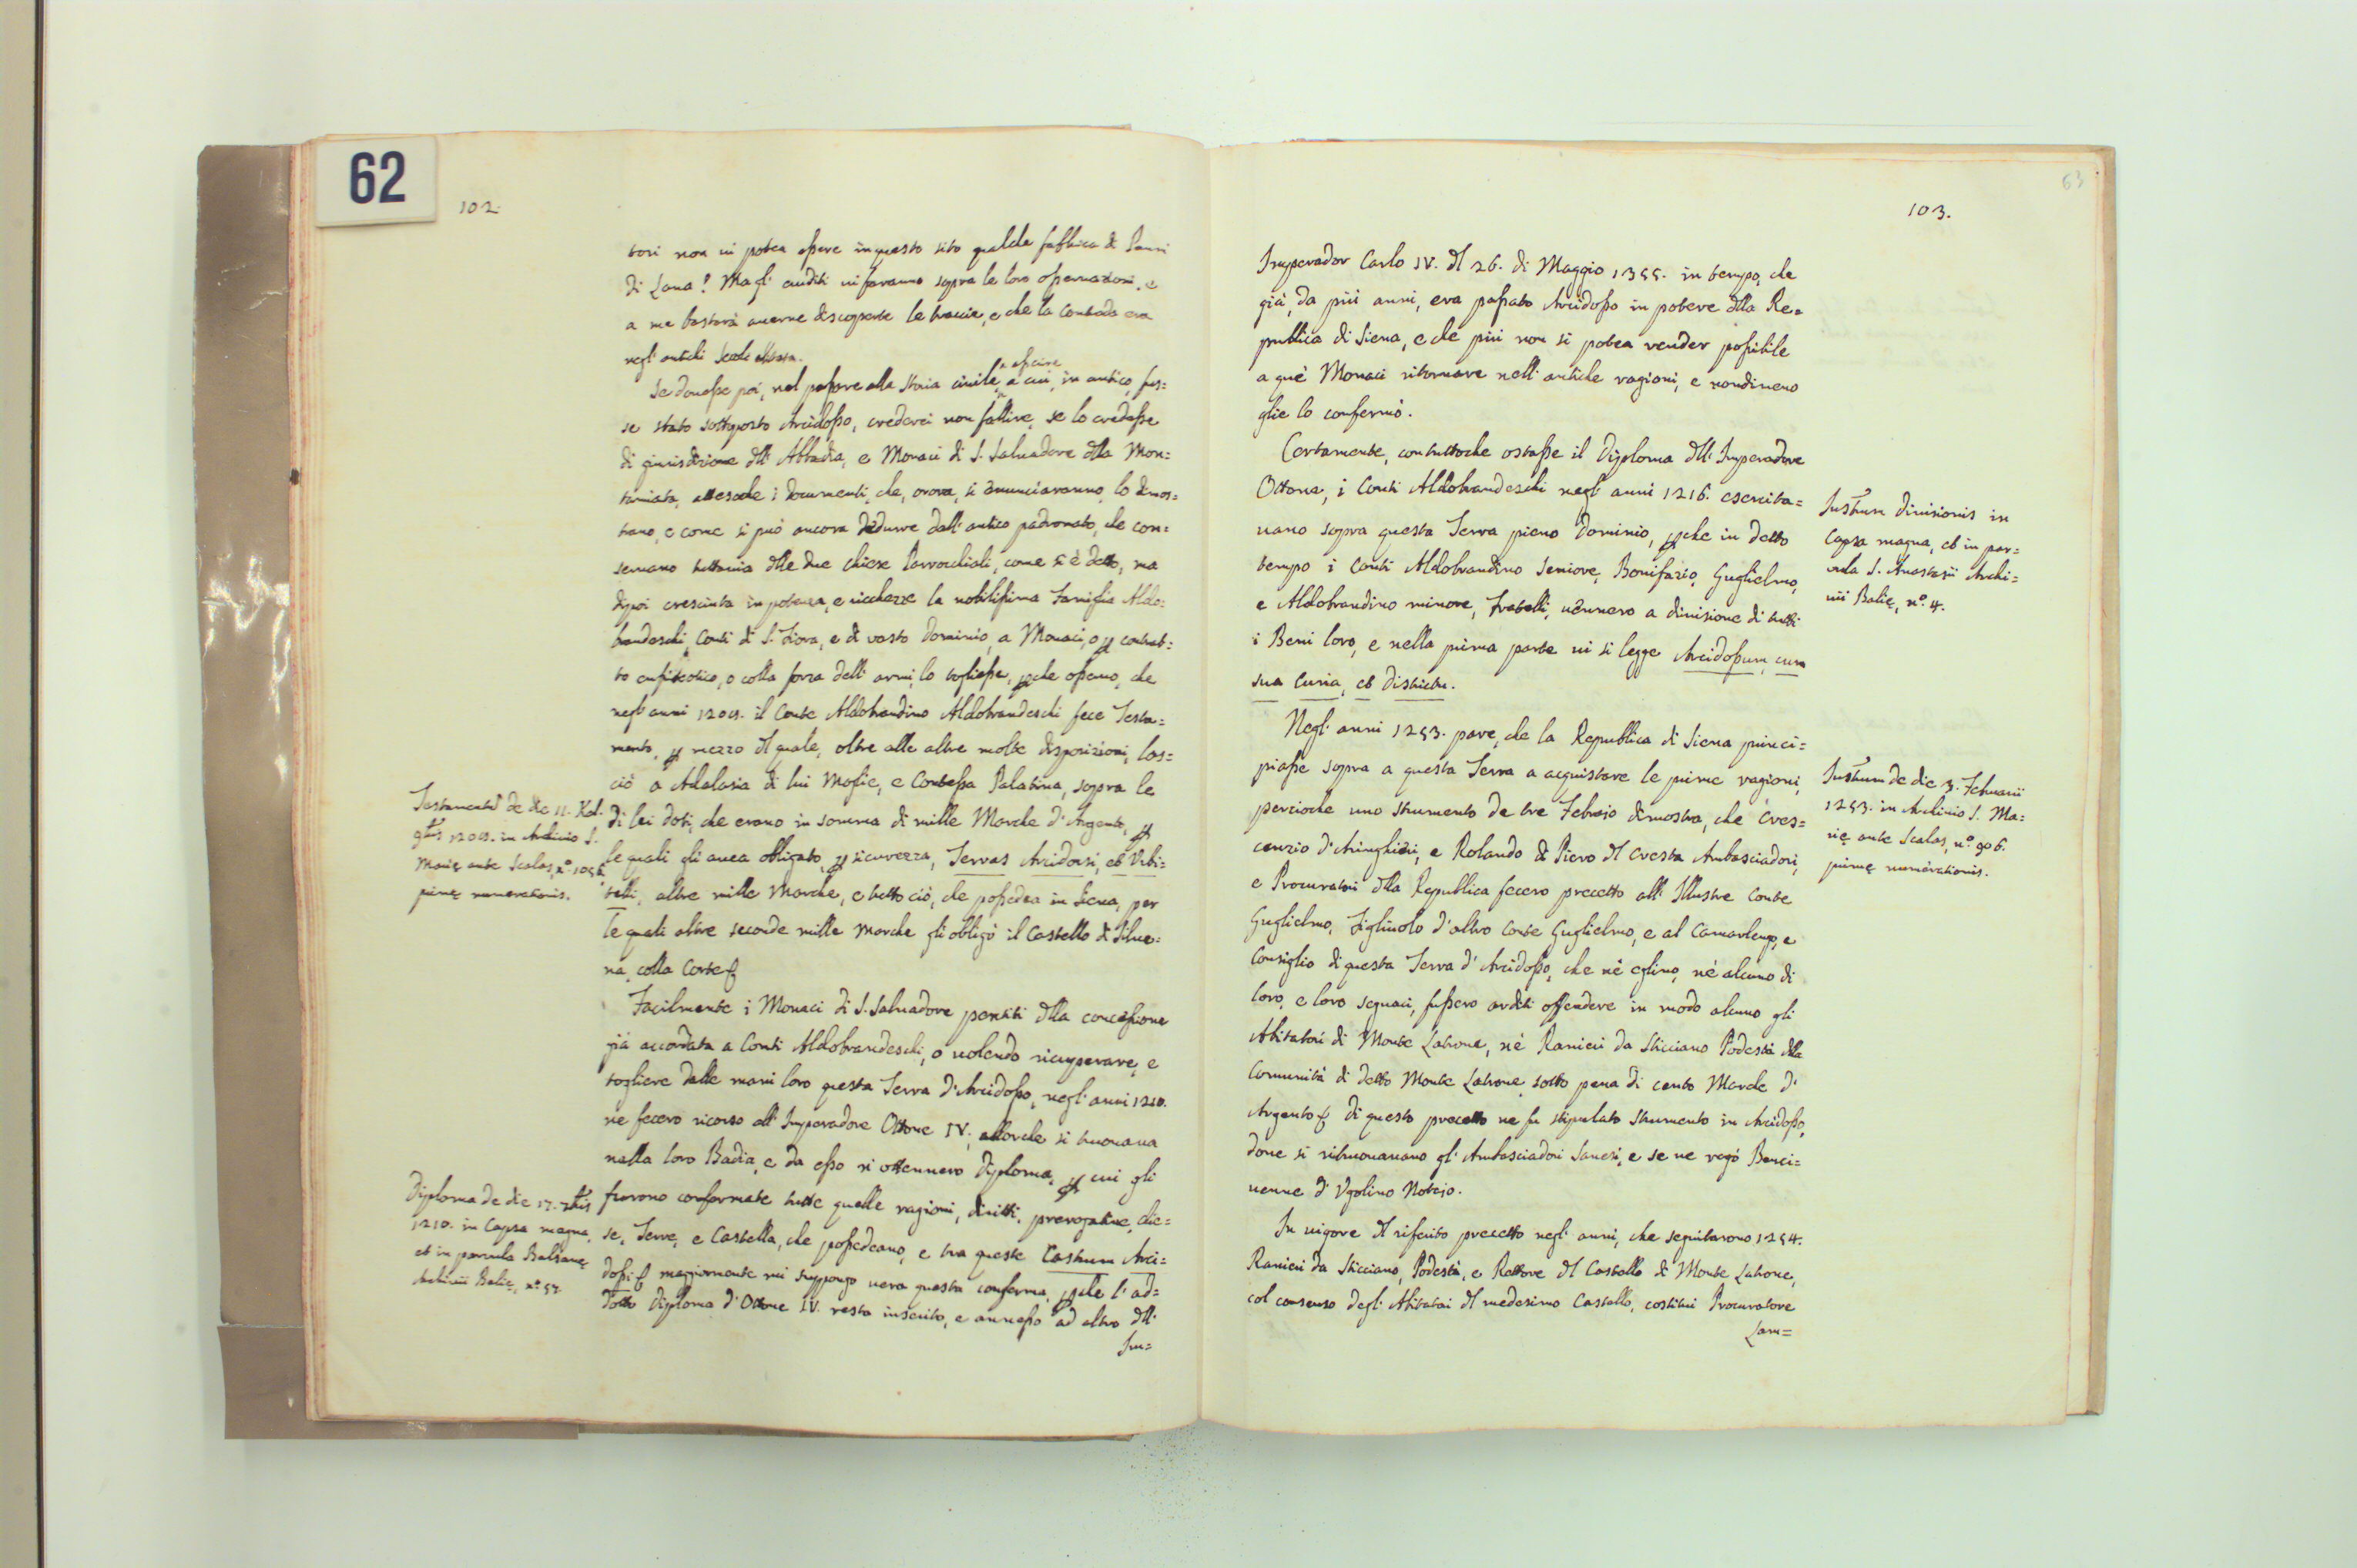 62
102.
tori non vi potea essere in questo sito qualche fabbrica di Panni
di Lana! Ma gl' eruditi vi faranno sopra le loro osservazioni, e
a me basterà averne discoperte le traccie, e che la Contrada era
negl' antichi Secoli
Se dovesse poi, nel passare alla storia civile, a cui, in antico, fos-
se stato sottoposto Arcidosso, crederei non fallire, se lo credesse
di giurisdizione dll' Abbadia, e Monaci di S. Salvadore dlla Mon=
tamiata, attesoche i documenti, che, orora, si enunciaranno, lo dimos=
trano, e come si può ancora didurre dall' antico padronato, che con=
servano tuttavia dlle due chiese Parrochiali, come si è detto, ma
dipoi cresciuta in potenza, e ricchezze la nobilissima Famiglia Aldo=
brandeschi, Conti di S. Fiora, e di vasto dominio, a Monaci, o p contrat=
to enfiteotico, o colla forza dell' armi, lo togliesse, pche osservo, che
negl' anni 1208. il Conte Aldobrandino Aldobrandeschi fece Testa=
mento, p mezzo dl quale, oltre alle altre molte disposizioni, las=
ciò a Adalasia di lui Moglie, e Contessa Palatina, sopra le
Testamentũ de die 11. Kal.
di lei doti, che erano in somma di mille Marche d' Argento, p
1208. in Archivio S.
le quali gli avea obligato, p sicurezza, Terras Arcidossi, et Viti=
Marię ante Scalas, nº.
telli, altre mille Marche, e tutto ciò, che possedea in Siena, per
primę numerationis.
le quali altre seconde mille Marche gli obligò il Castello di Silve=
na, colla Corte &
Facilmente i Monaci di S. Salvadore pentiti dlla concessione
già accordata a Conti Aldobrandeschi, o volendo ricuperare, e
togliere dalle mani loro questa Terra d' Arcidosso, negl' anni 1210.
ne fecero ricorso all' Imperadore Ottone IV, allorche si trovava
nella loro Badia, e da esso ne ottennero Diploma, p cui gli
Diploma de die 17. 7bris
furono confermate tutte quelle ragioni, diritti, prerogative, chie=
1210. in Capsa magna,
se, Terre, e Castella, che possedeano, e tra queste Castrum Arci=
et in parvula Balzanę
dossi & maggiormente mi suppongo vera questa conferma, pche l' ad=
Archivii Balię, nº. 57.
dotto Diploma d' Ottone IV. resta inserito, e annesso ad altro dll'
Im=
63
103.
Imperador Carlo IV. dl 26. di Maggio 1355. in tempo, che
già, da più anni, era passato Arcidosso in potere dlla Re=
publica di Siena, e che più non si potea vender possibile
a que' Monaci ritornare nell' antiche ragioni, e nondimeno
glie lo confermò.
Certamente, contuttoche ostasse il Diploma dll' Imperadore
Ottone, i Conti Aldobrandeschi negl' anni 1216. esercita=
vano sopra questa Terra pieno Dominio, pche in detto
tempo i Conti Aldobrandino Seniore, Bonifazio, Guglielmo,
e Aldobrandino minore, Fratelli, vennero a divisione di tutti
i Beni loro, e nella prima parte vi si legge Arcidossum, cum
sua Curia, et Districtu.
Instrum Divisionis in
Capsa magna, et in par=
vula S. Anastasii Archi=
vii Balię, nº. 4.
Negl' anni 1253. pare, che la Republica di Siena princi=
piasse sopra a questa Terra a acquistare le prime ragioni,
percioche uno strumento de tre Febrajo dimostra, che Cres=
cenzio d' Aringhieri, e Rolando di Piero dl Cresta Ambasciadori,
e Procuratori dlla Republica fecero precetto all' Illustre Conte
Guglielmo, Figliuolo d' altro Conte Guglielmo, e al Camarlengo, e
Consiglio di questa Terra d' Arcidosso, che nè eglino, nè alcuno di
loro, e loro seguaci, fussero arditi offendere in modo alcuno gli
Abitatori di Monte Latrone, nè Ranieri da Sticciano Podestà dlla
Comunità di detto Monte Latrone sotto pena di cento Marche d'
Argento & di questo precetto ne fu stipulato strumento in Arcidosso,
dove si ritrovavano gl' Ambasciadori Sanesi, e se ne rogò Benci=
venne d' Ugolino Notajo.
Instrum de die 3. Februarii
1253. in Archivio S. Ma=
rię ante Scalas, nº. 906.
primę numerationis.
In vigore dl riferito precetto negl' anni, che seguitarono 1254.
Ranieri da Sticciano, Podestà, e Rettore dl Castello di Monte Latrone,
col consenso degl' Abitatori dl medesimo Castello, costituì Procuratore
Lam=